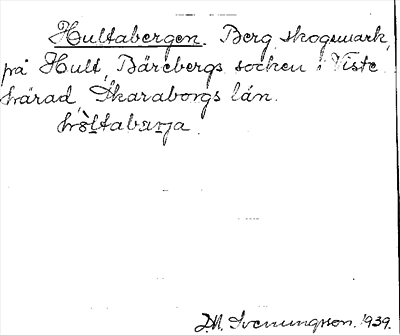 Hultabergen. Berg, skogsmark,
på Hult, Bärebergs socken i Viste
härad, Skaraborgs län.
hòltabærja.
D.M. Svenungsson. 1939.